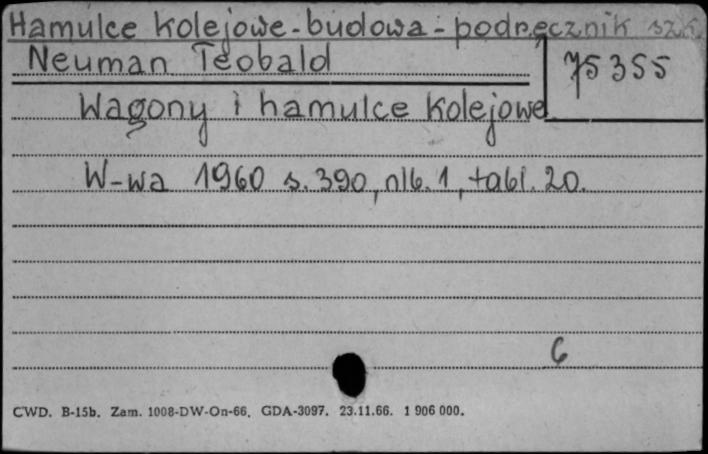 Hamulce kolejowe-budowa-podręcznik szk.
Neuman Teobald
75355
Wagony i hamulce kolejowe
W-wa 1960 s. 390, nlb. 1, tabl. 20.
6
CWD. B-15b. Zam. 1008-DW-On-66. GDA-3097. 23.11.66. 1 906 000.